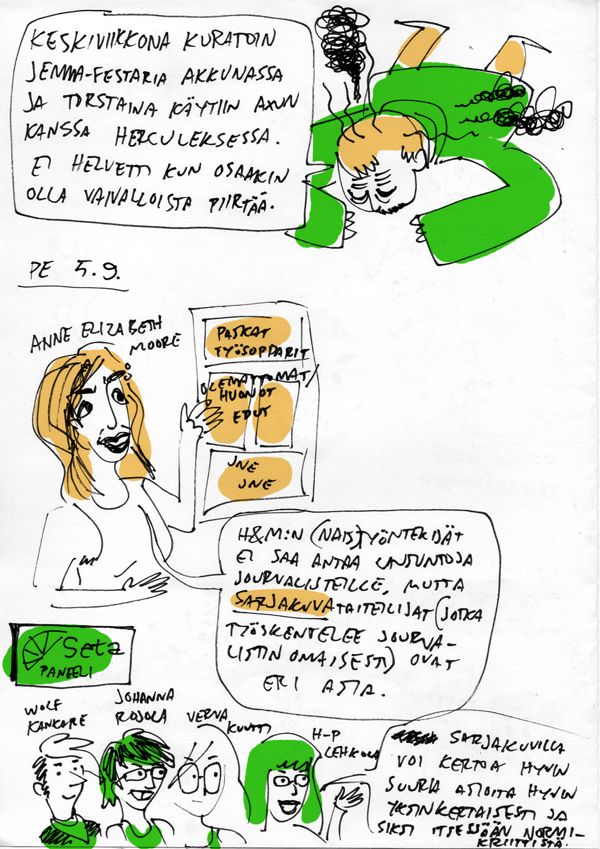 KESKIVIIKKONA KURATOIN
JEMMA-FESTARIA AKKUNASSA
JA TORSTAINA KÄYTIIN AXUN
KANSSA HERCULEKSESSA.
EI HELVETTI KUN OSAAKIN
OLLA VAIVALLOISTA PIIRTÄÄ.
PE 5.9.
ANNE ELIZABETH
MOORE
PASKAT
TYÖSOPPARIT
OLEMATTOMAT/
HUONOT
EDUT
JNE
JNE
H&M:N (NAIS)TYÖNTEKIJÄT
EI SAA ANTAA LAUSUNTOJA
JOURNALISTEILLE, MUTTA
SARJAKUVATAITEILIJAT (JOTKA
TYÖSKENTELEE JOURNA-
LISTIN OMAISESTI) OVAT
ERI ASIA.
Seta
PANEELI
WOLF
KANKARE
JOHANNA
ROJOLA
VERNA
KUUTTI
H-P
LEHKOLA
SARJAKUVILLA
VOI KERTOA HYVIN
SUURIA ASIOITA HYVIN
YKSINKERTAISESTI JA
SIKSI ITSESSÄÄN NORMI-
KRIITTISTÄ.